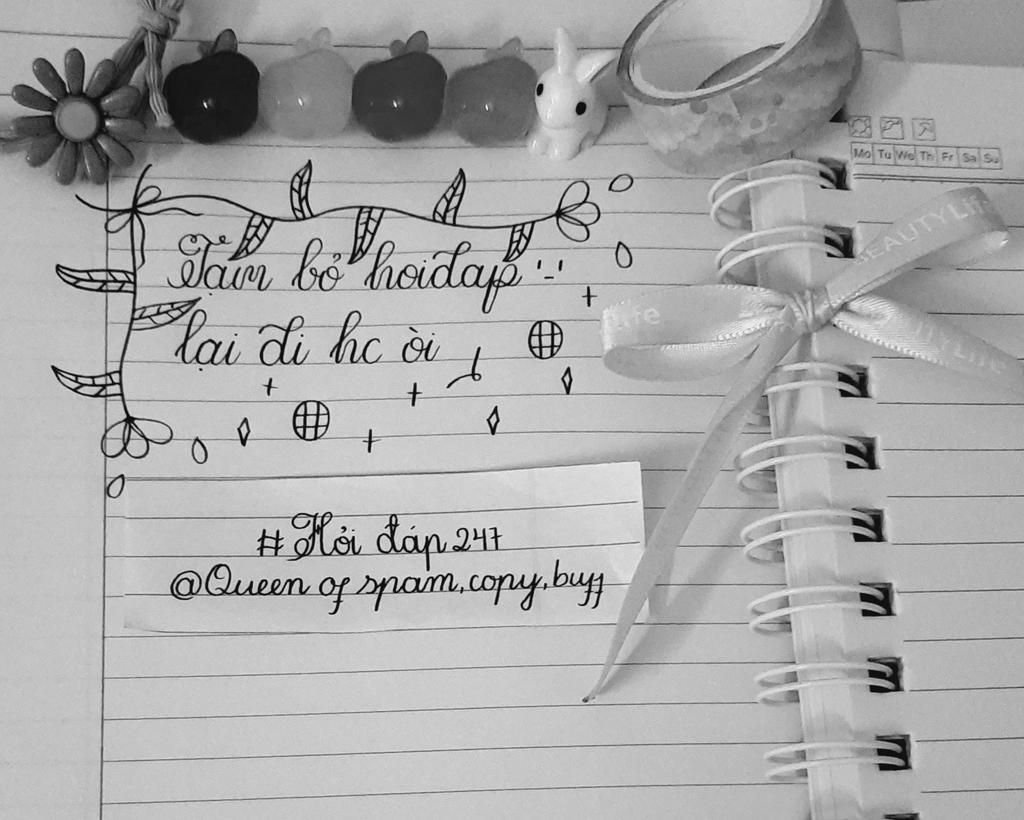 Mo Tu We Th Fr Sa Su
Tạm bỏ hoidap '-'
lại đi hc òi
BEAUTYLife
Life
#Hỏi đáp 247
@Queen of spam, copy, buff